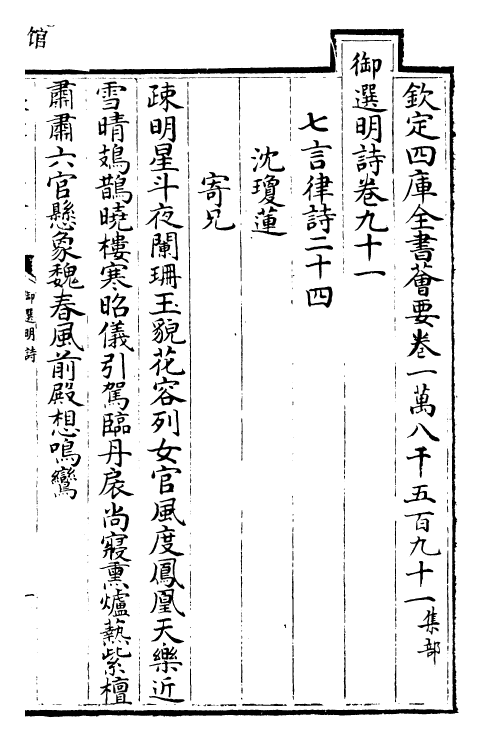 欽定四庫全書薈要卷一萬八千五百九十一集部
御選明詩卷九十一
七言律詩二十四
沈瓊蓮
寄兄
疎明星斗夜闌珊玉貌花容列女官風度鳳凰天樂近
雪晴鳷鵲曉樓寒昭儀引駕臨丹扆尚寢熏爐爇紫檀
肅肅六宮懸象魏春風前殿想鳴鸞
御選明詩
一
馆